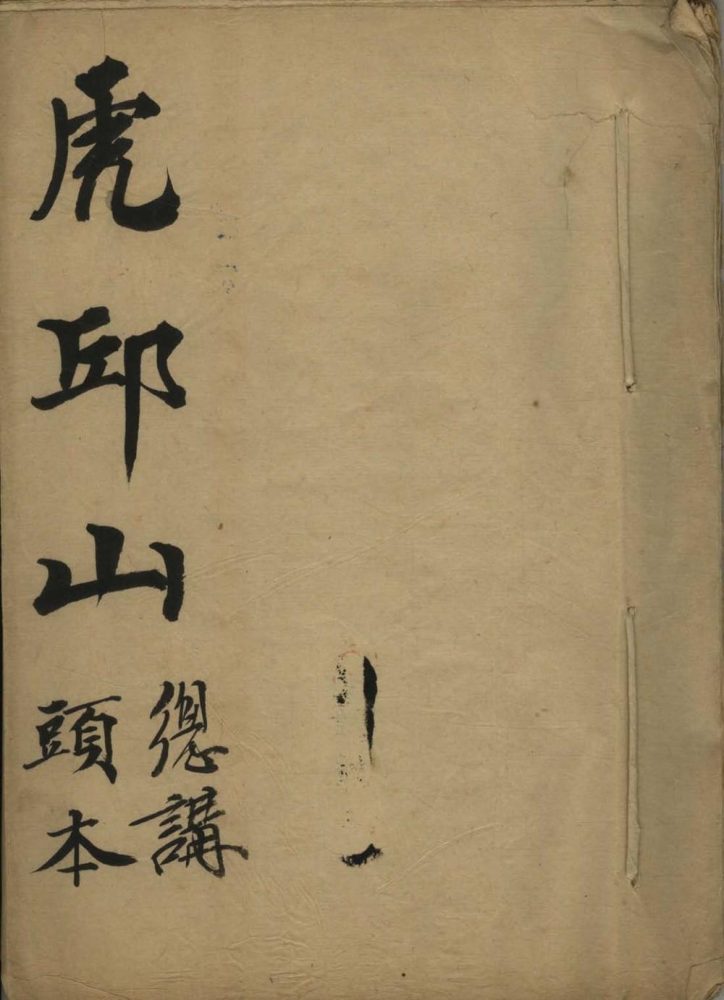 虎邱山
總講
頭本